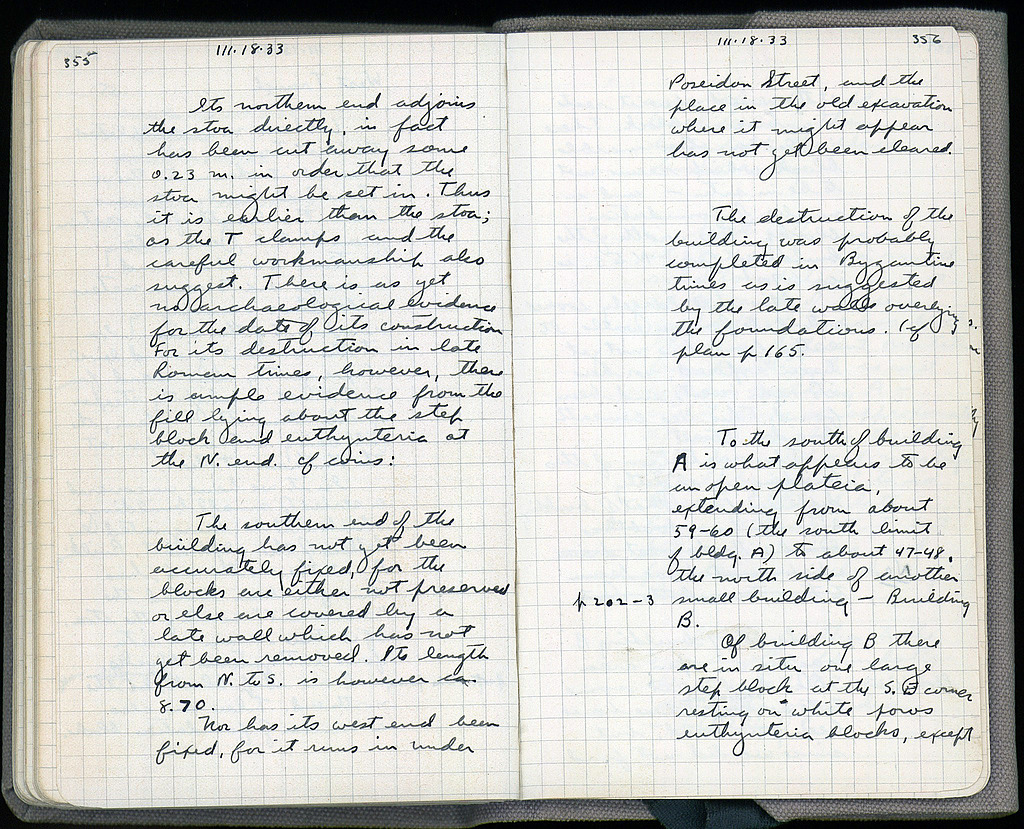 355
III·18·33
Its northern end adjoins
the stoa directly, in fact
has been cut away some
0.23 m. in order that the
stoa might be set in. Thus
it is earlier than the stoa;
as the T clamps and the
careful workmanship also
suggest. There is as yet
no archaeological evidence
for the date of its construction
For its destruction in late
Roman times, however, there
is ample evidence from the
fill lying about the step
block and euthynteria at
the N. end. cf coins:
The southern end of the
building has not yet been
accurately fixed, for the
blocks are either not preserved
or else are covered by a
late wall which has not
yet been removed. Its length
from N. to S. is however ca.
8.70.
Nor has its west end been
fixed, for it runs in under
III·18·33
356
Poseidon Street, and the
place in the old excavation
where it might appear
has not yet been cleared.
The destruction of the
building was probably
completed in Byzantine
times as is suggested
by the late walls overlying
the foundations. (cf
plan p 165.
To the south of building
A is what appears to be
an open plateia,
extending from about
59-60 (the south limit
of bldg. A) to about 47-48,
the north side of another
p 202-3 small building - Building
B.
Of building B there
are in situ one large
step block at the S. E corner
resting on white poros
euthynteria blocks, except